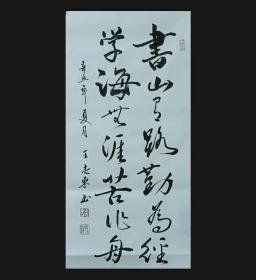 書山有路勤為經
学海無涯苦作舟
辛丑年夏月 王志東书